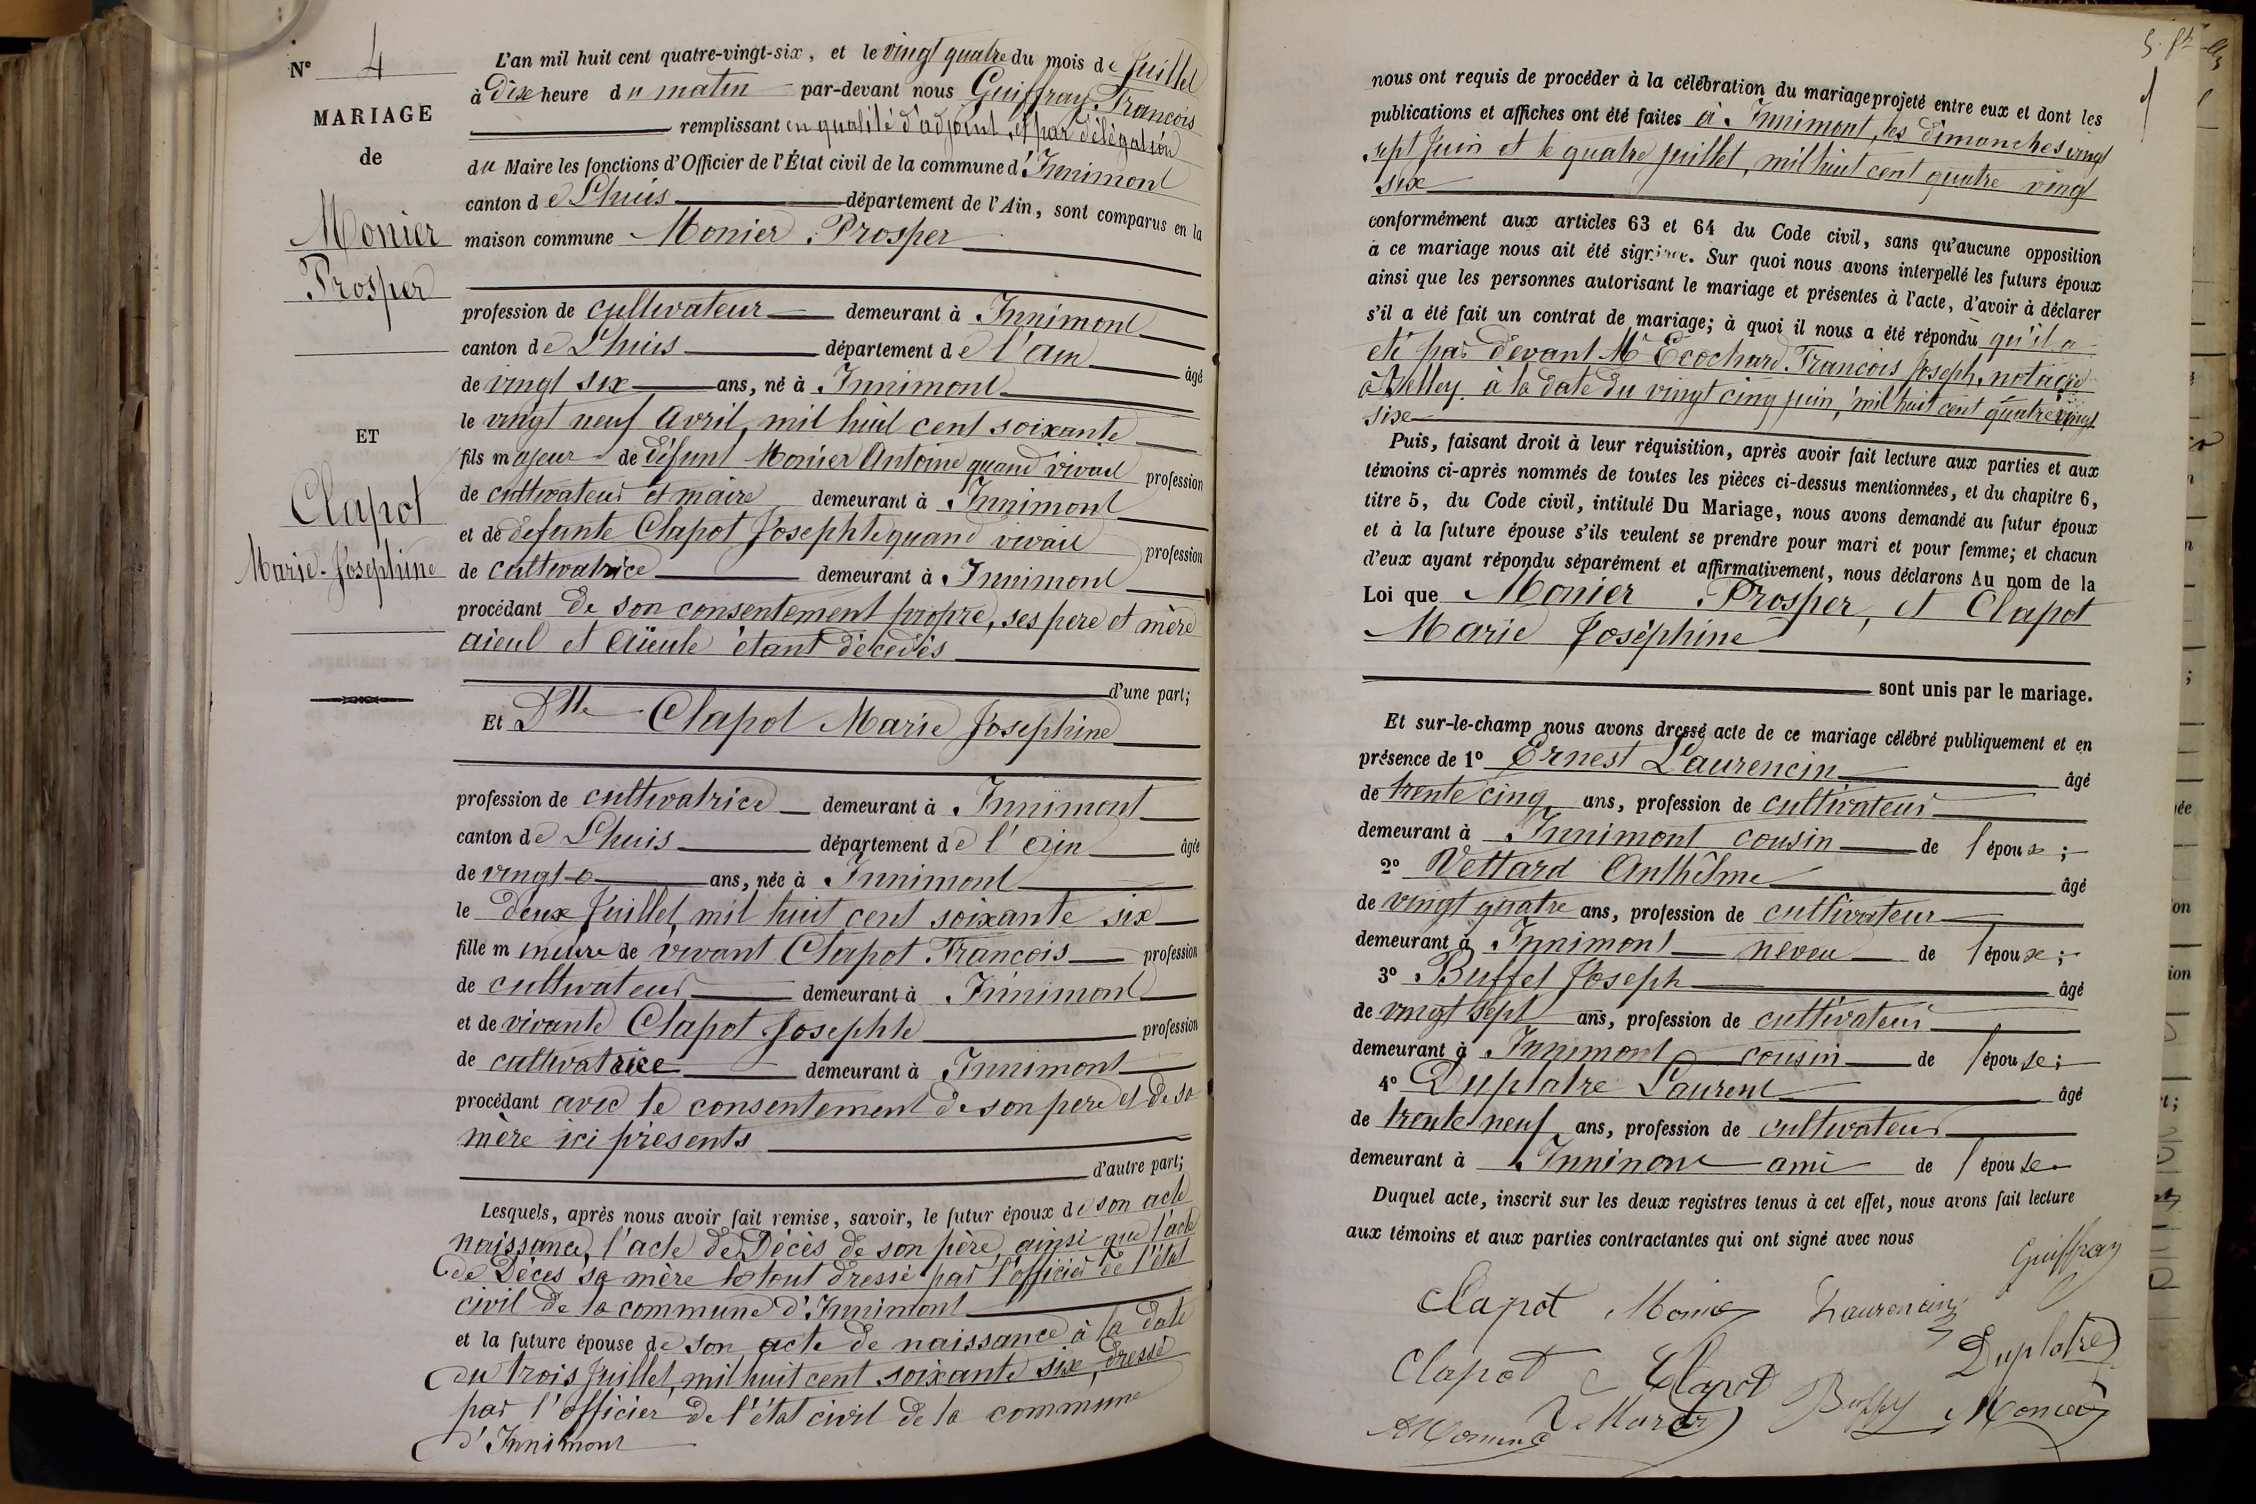 N° 4
MARIAGE
de
Monier
Prosper
ET
Clapot
Marie-Joséphine
L'an mil huit cent quatre-vingt-six, et le vingt quatre du mois de Juillet
à dix heure du matin par-devant nous Guiffray François
remplissant en qualité d'adjoint, et par délégation
du Maire les fonctions d'Officier de l'État civil de la commune d'Innimont
canton de Lhuis département de l'Ain, sont comparus en la
maison commune Monier Prosper
profession de cultivateur demeurant à Innimont
canton de Lhuis département de l'ain âgé
de vingt six ans, né à Innimont
le vingt neuf Avril, mil huit cent soixante
fils majeur de défunt Monier Antoine quand vivait profession
de cultivateur et maire demeurant à Innimont
et de defunte Clapot Josephte quand vivait profession
de cultivatrice demeurant à Innimont
procédant de son consentement propre, ses pere et mère
aieul et aieule étant décédés
d'une part;
Et Dlle Clapot Marie Josephine
profession de cultivatrice demeurant à Innimont
canton de Lhuis département de l'ain âgée
de vingt ans, née à Innimont
le deux Juillet, mil huit cent soixante six
fille mineure de vivant Clapot François profession
de cultivateur demeurant à Innimont
et de vivante Clapot Josephte profession
de cultivatrice demeurant à Innimont
procédant avec le consentement de son pere et de sa
mère ici présents
d'autre part;
Lesquels, après nous avoir fait remise, savoir, le futur époux de son acte
naissance, l'acte de Décès de son père, ainsi que l'acte
de Décès sa mère le tout dressé par l'officier de l'état
civil de la commune d'Innimont
et la future épouse de son acte de naissance à la date
du trois Juillet, mil huit cent soixante six, dressé
par l'officier de l'état civil de la commune
d'Innimont
nous ont requis de procéder à la célébration du mariage projeté entre eux et dont les
publications et affiches ont été faites à Innimont, les dimanches vingt
sept Juin et le quatre juillet, mil huit cent quatre vingt
six
conformément aux articles 63 et 64 du Code civil, sans qu'aucune opposition
à ce mariage nous ait été signifiée. Sur quoi nous avons interpellé les futurs époux
ainsi que les personnes autorisant le mariage et présentes à l'acte, d'avoir à déclarer
s'il a été fait un contrat de mariage; à quoi il nous a été répondu qu'il a
été par devant Mr Ecochard François Joseph, notaire
à Belley, à la date du vingt cinq juin, mil huit cent quatre vingt
six
Puis, faisant droit à leur réquisition, après avoir fait lecture aux parties et aux
témoins ci-après nommés de toutes les pièces ci-dessus mentionnées, et du chapitre 6,
titre 5, du Code civil, intitulé Du Mariage, nous avons demandé au futur époux
et à la future épouse s'ils veulent se prendre pour mari et pour femme; et chacun
d'eux ayant répondu séparément et affirmativement, nous déclarons Au nom de la
Loi que Monier Prosper, et Clapot
Marie Joséphine
sont unis par le mariage.
Et sur-le-champ nous avons dressé acte de ce mariage célébré publiquement et en
présence de 1° Ernest Laurencin âgé
de trente cinq ans, profession de cultivateur
demeurant à Innimont cousin de l'époux;
2° Vettard Anthelme âgé
de vingt quatre ans, profession de cultivateur
demeurant à Innimont neveu de l'époux;
3° Buffet Joseph âgé
de vingt sept ans, profession de cultivateur
demeurant à Innimont cousin de l'épouse;
4° Duplatre Laurent âgé
de trente neuf ans, profession de cultivateur
demeurant à Innimont ami de l'épouse
Duquel acte, inscrit sur les deux registres tenus à cet effet, nous avons fait lecture
aux témoins et aux parties contractantes qui ont signé avec nous
Guiffray
Clapot Monier Laurencin
Duplatre
Clapot Clapot
Vettard Monier